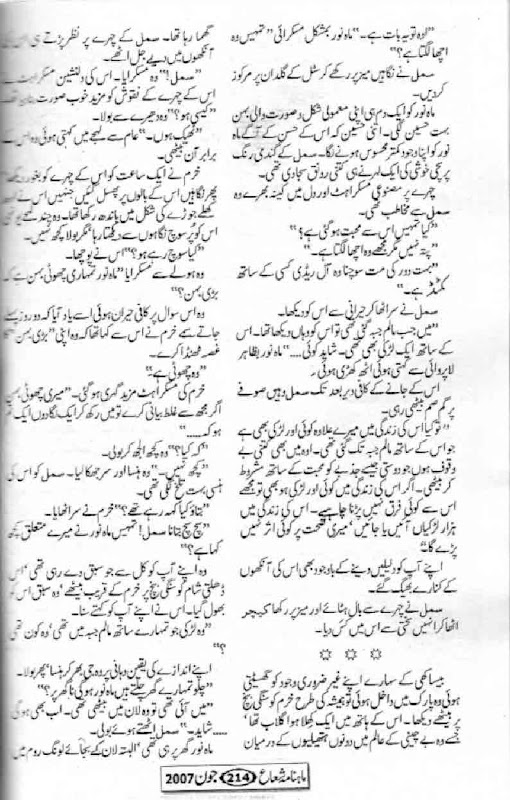 ”اوہ تو یہ بات ہے۔“ ماہ نور بمشکل مسکرائی ”تمہیں وہ
اچھا لگتا ہے؟“
سمل نے نگاہیں میز پر رکھے کرسٹل کے گلدان پر مرکوز
کر دیں۔
ماہ نور کو ایک دم ہی اپنی معمولی شکل و صورت والی بہن
بہت حسین لگی۔ اتنی حسین کہ اس کے حسن کے آگے ماہ
نور کو اپنا وجود کمتر محسوس ہونے لگا۔ سمل کے گندمی رنگ
پر سچی خوشی کی ایک لہر نے ہی کتنی رونق سجا دی تھی۔
چہرے پر مصنوعی مسکراہٹ اور دل میں کینہ بھرے وہ
سمل سے مخاطب تھی۔
”کیا تمہیں اس سے محبت ہو گئی ہے؟“
”پتہ نہیں مگر مجھے وہ اچھا لگتا ہے۔“
”بہت دور کی مت سوچنا وہ آل ریڈی کسی کے ساتھ
کمیٹڈ ہے۔“
سمل نے سر اٹھا کر حیرانی سے اس کو دیکھا۔
”میں جب مالم جبہ گئی تھی تو اس کو وہاں دیکھا تھا۔ اس
کے ساتھ ایک لڑکی بھی تھی۔ شاید کوئی....“ ماہ نور بظاہر
لاپروائی سے کہتی ہوئی اٹھ کھڑی ہوئی۔
اس کے جانے کے کافی دیر بعد تک سمل وہیں صوفے
پر گم صم بیٹھی رہی۔
”تو کیا اس کی زندگی میں میرے علاوہ کوئی اور لڑکی بھی ہے
جو اس کے ساتھ مالم جبہ تک گئی تھی۔ اوہ میں بھی کتنی بے
وقوف ہوں جو دوستی جیسے جذبے کو محبت کے ساتھ مشروط
کر بیٹھی۔ اگر اس کی زندگی میں کوئی اور لڑکی ہو بھی تو مجھے
اس سے کوئی فرق نہیں پڑنا چاہیے۔ اس کی زندگی میں
ہزار لڑکیاں آئیں یا جائیں میری صحت پر کوئی اثر نہیں
پڑے گا۔“
اپنے آپ کو دلیلیں دینے کے باوجود بھی اس کی آنکھوں
کے کنارے بھیگ گئے۔
سمل نے چہرے سے بال ہٹائے اور میز پر رکھا کیچر
اٹھا کر انہیں سختی سے اس میں کس دیا۔
☆ ☆ ☆
بیساکھی کے سہارے اپنے غیر ضروری وجود کو گھسیٹتی
ہوئی وہ پارک میں داخل ہوئی تو ہمیشہ کی طرح خرم کو سنگی بنچ
پر بیٹھے دیکھا۔ اس کے ہاتھ میں ایک کھلا ہوا گلاب تھا‘
جسے وہ بے چینی کے عالم میں دونوں ہتھیلیوں کے درمیان
گھما رہا تھا۔ سمل کے چہرے پر نظر پڑتے ہی اس کی
آنکھوں میں دیے جل اٹھے۔
”سمل!“ وہ مسکرایا۔ اس کی دلنشین مسکراہٹ
اس کے چہرے کے نقوش کو مزید خوب صورت تھا۔
”کیسی ہو؟“ وہ دھیرے سے بولا۔
”ٹھیک ہوں۔“ عام سے لہجے میں کہتی ہوئی وہ اس کے
برابر آن بیٹھی۔
خرم نے ایک ساعت کو اس کے چہرے کو بغور دیکھا
پھر نگاہیں اس کے بالوں پر پھسل گئیں جنہیں اس نے
جوڑے کی شکل میں باندھ رکھا تھا۔ وہ چند لمحے
اس کو پرسوچ نگاہوں سے دیکھتا رہا مگر بولا کچھ نہیں۔
”کیا سوچ رہے ہو؟“ اس نے پوچھا۔
وہ ہولے سے مسکرایا ”ماہ نور تمہاری چھوٹی بہن ہے کہ
بڑی بہن؟“
وہ اس سوال پر کافی حیران ہوئی اسے یاد آیا کہ دو روز پہلے
جاتے سمے خرم نے اس سے کہا تھا کہ وہ اپنی ”بڑی بہن“ کا
غصہ ٹھنڈا کرے۔
”وہ چھوٹی ہے۔“
خرم کی مسکراہٹ مزید گہری ہو گئی۔ ”میری چھوٹی بہن
اگر مجھ سے غلط بیانی کرے تو میں رکھ کر ایک لگا دوں ایک تم
ہو کہ.....“
”کہ کیا؟“ وہ کچھ الجھ کر بولی۔
”کچھ نہیں۔“ وہ ہنسا اور سر جھکا لیا۔ سمل کو اس کی
ہنسی بہت تلخ لگی تھی۔
”بتاؤ کیا کہہ رہے تھے؟“ خرم نے سر اٹھایا۔
”سچ سچ بتانا سمل! تمہیں ماہ نور نے میرے متعلق کچھ
کہا ہے؟“
وہ اپنے آپ کو کل سے جو سبق دے رہی تھی‘ اس
ڈھلتی شام کو سنگی بنچ پر خرم کے قریب بیٹھے‘ وہ سبق اس کو
بھول گیا۔ اس نے اپنے آپ کو کہتے سنا۔
”وہ لڑکی جو تمہارے ساتھ مالم جبہ میں تھی‘ وہ کون تھی
؟“
اپنے اندازے کی یقین دہانی پر وہ جی بھر کر ہنسا‘ پھر بولا۔
”چلو تمہارے گھر چلتے ہیں ماہ نور ہو گی نا گھر پر؟“
”میں آئی تھی تو وہ لان میں بیٹھی تھی۔ اب بھی ہو گی
..... شاید۔“ سمل اٹھتے ہوئے بولی۔
ماہ نور گھر پر ہی تھی‘ البتہ لان کے بجائے لونگ روم میں
ماہنامہ شعاع 214 جون 2007